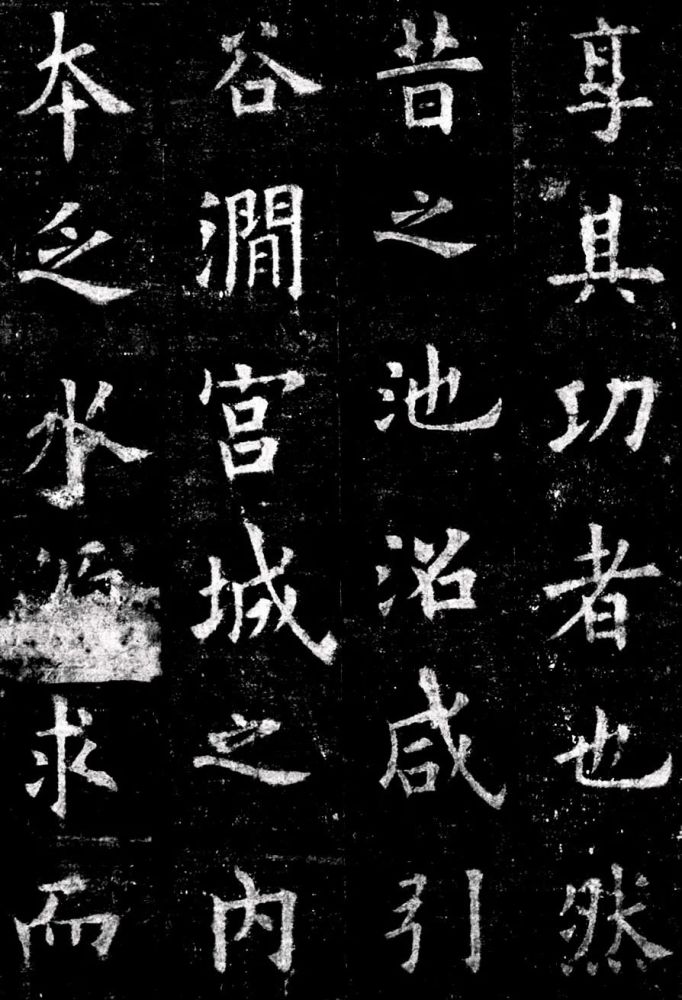 享其功者也然
昔之池沼咸引
谷澗宮城之內
本乏水求而